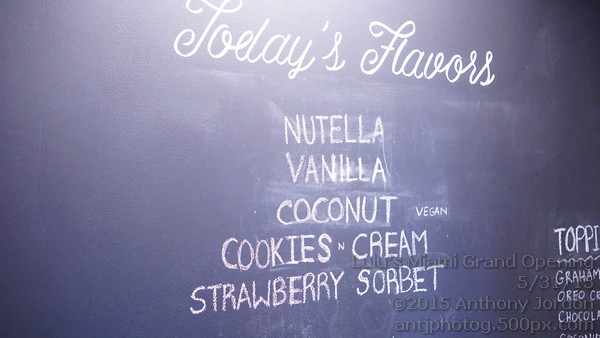 Today's Flavors
NUTELLA
VANILLA
COCONUT VEGAN
COOKIES N CREAM
STRAWBERRY SORBET
TOPPI
GRAHAM
OREO CR
CHOCOLA
COCONUT
Lulu's Miami Grand Opening
5/31/15
©2015 Anthony Jordon
antjphotog.500px.com